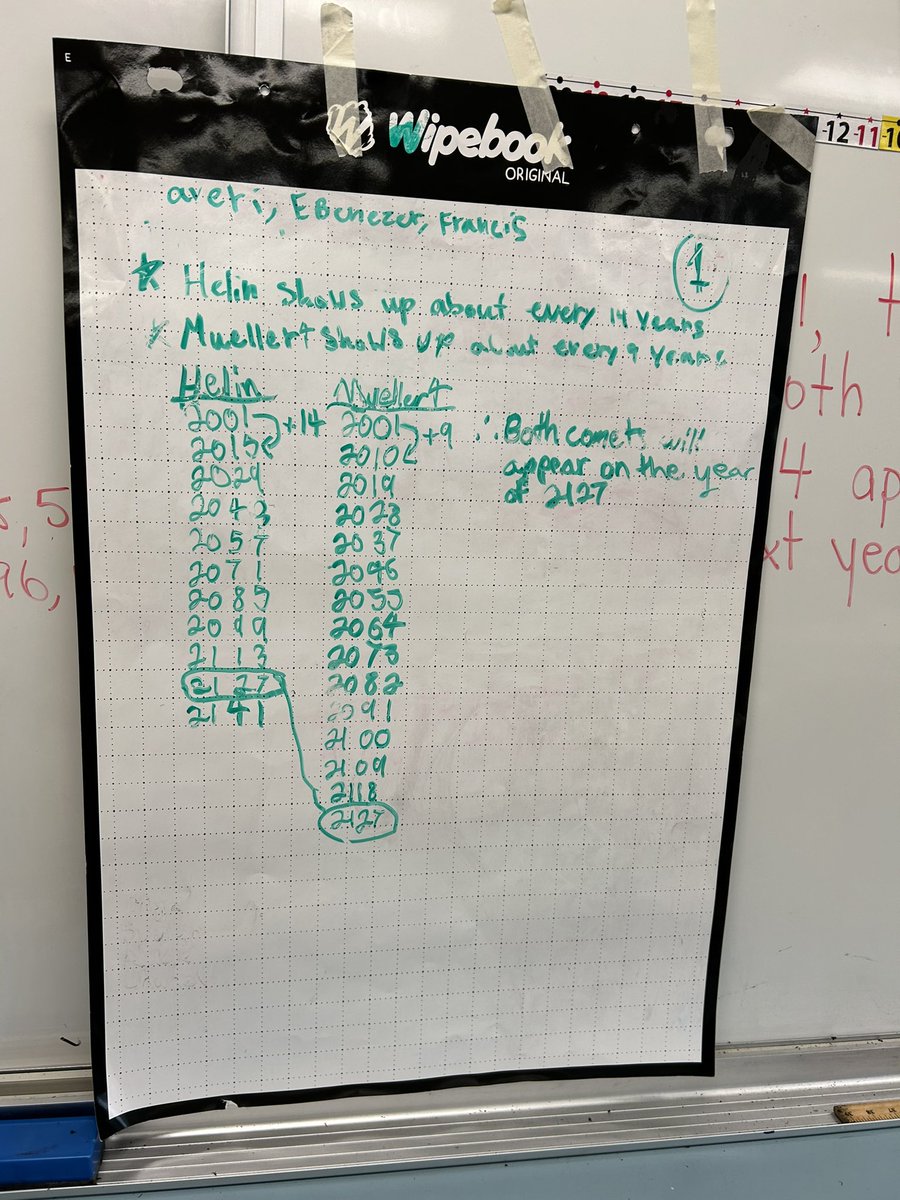 E
Wipebook
ORIGINAL
-12 -11 -10
averi, EBenezer, Francis
1
Helin shows up about every 14 years
Muellert shows up about every 9 years
Helin Muellert
2001 +14 2001 +9 ∴ Both comets will
2015 2010 appear on the year
2029 2019 of 2127
2043 2028
2057 2037
2071 2046
2085 2055
2099 2064
2113 2073
2127 2082
2141 2091
2100
2109
2118
2127
oth
4 ap
xt yea
5
96,